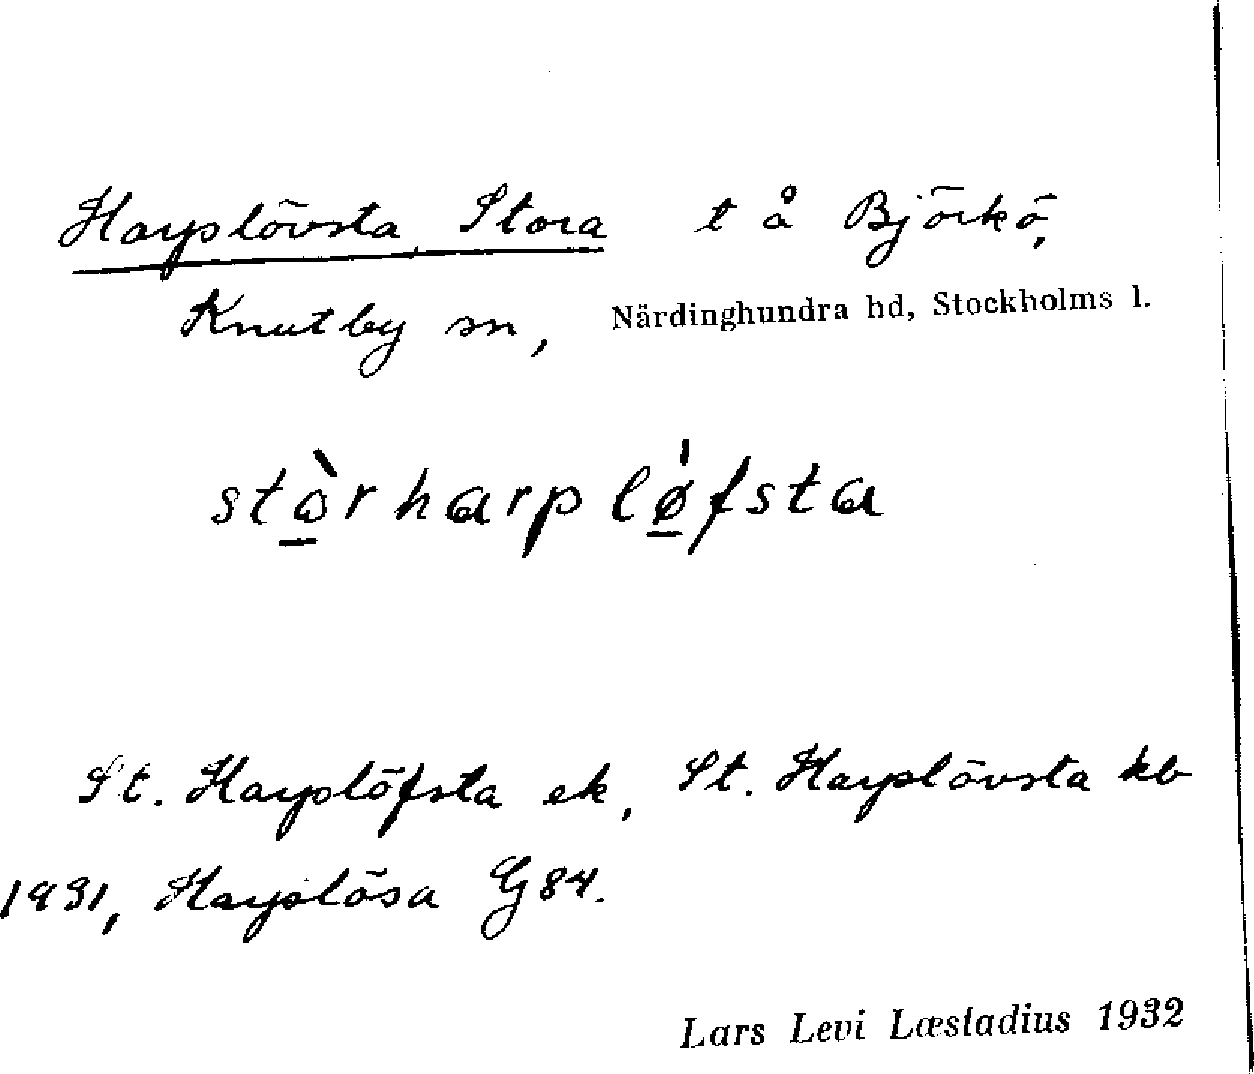 Harplövsta, Stora t å Björkö,
Knutby sn, Närdinghundra hd, Stockholms l.
stòrharpløfsta
St. Harplöfsta ek, St. Harplövsta kb
1931, Harplösa G 84.
Lars Levi Læstadius 1932